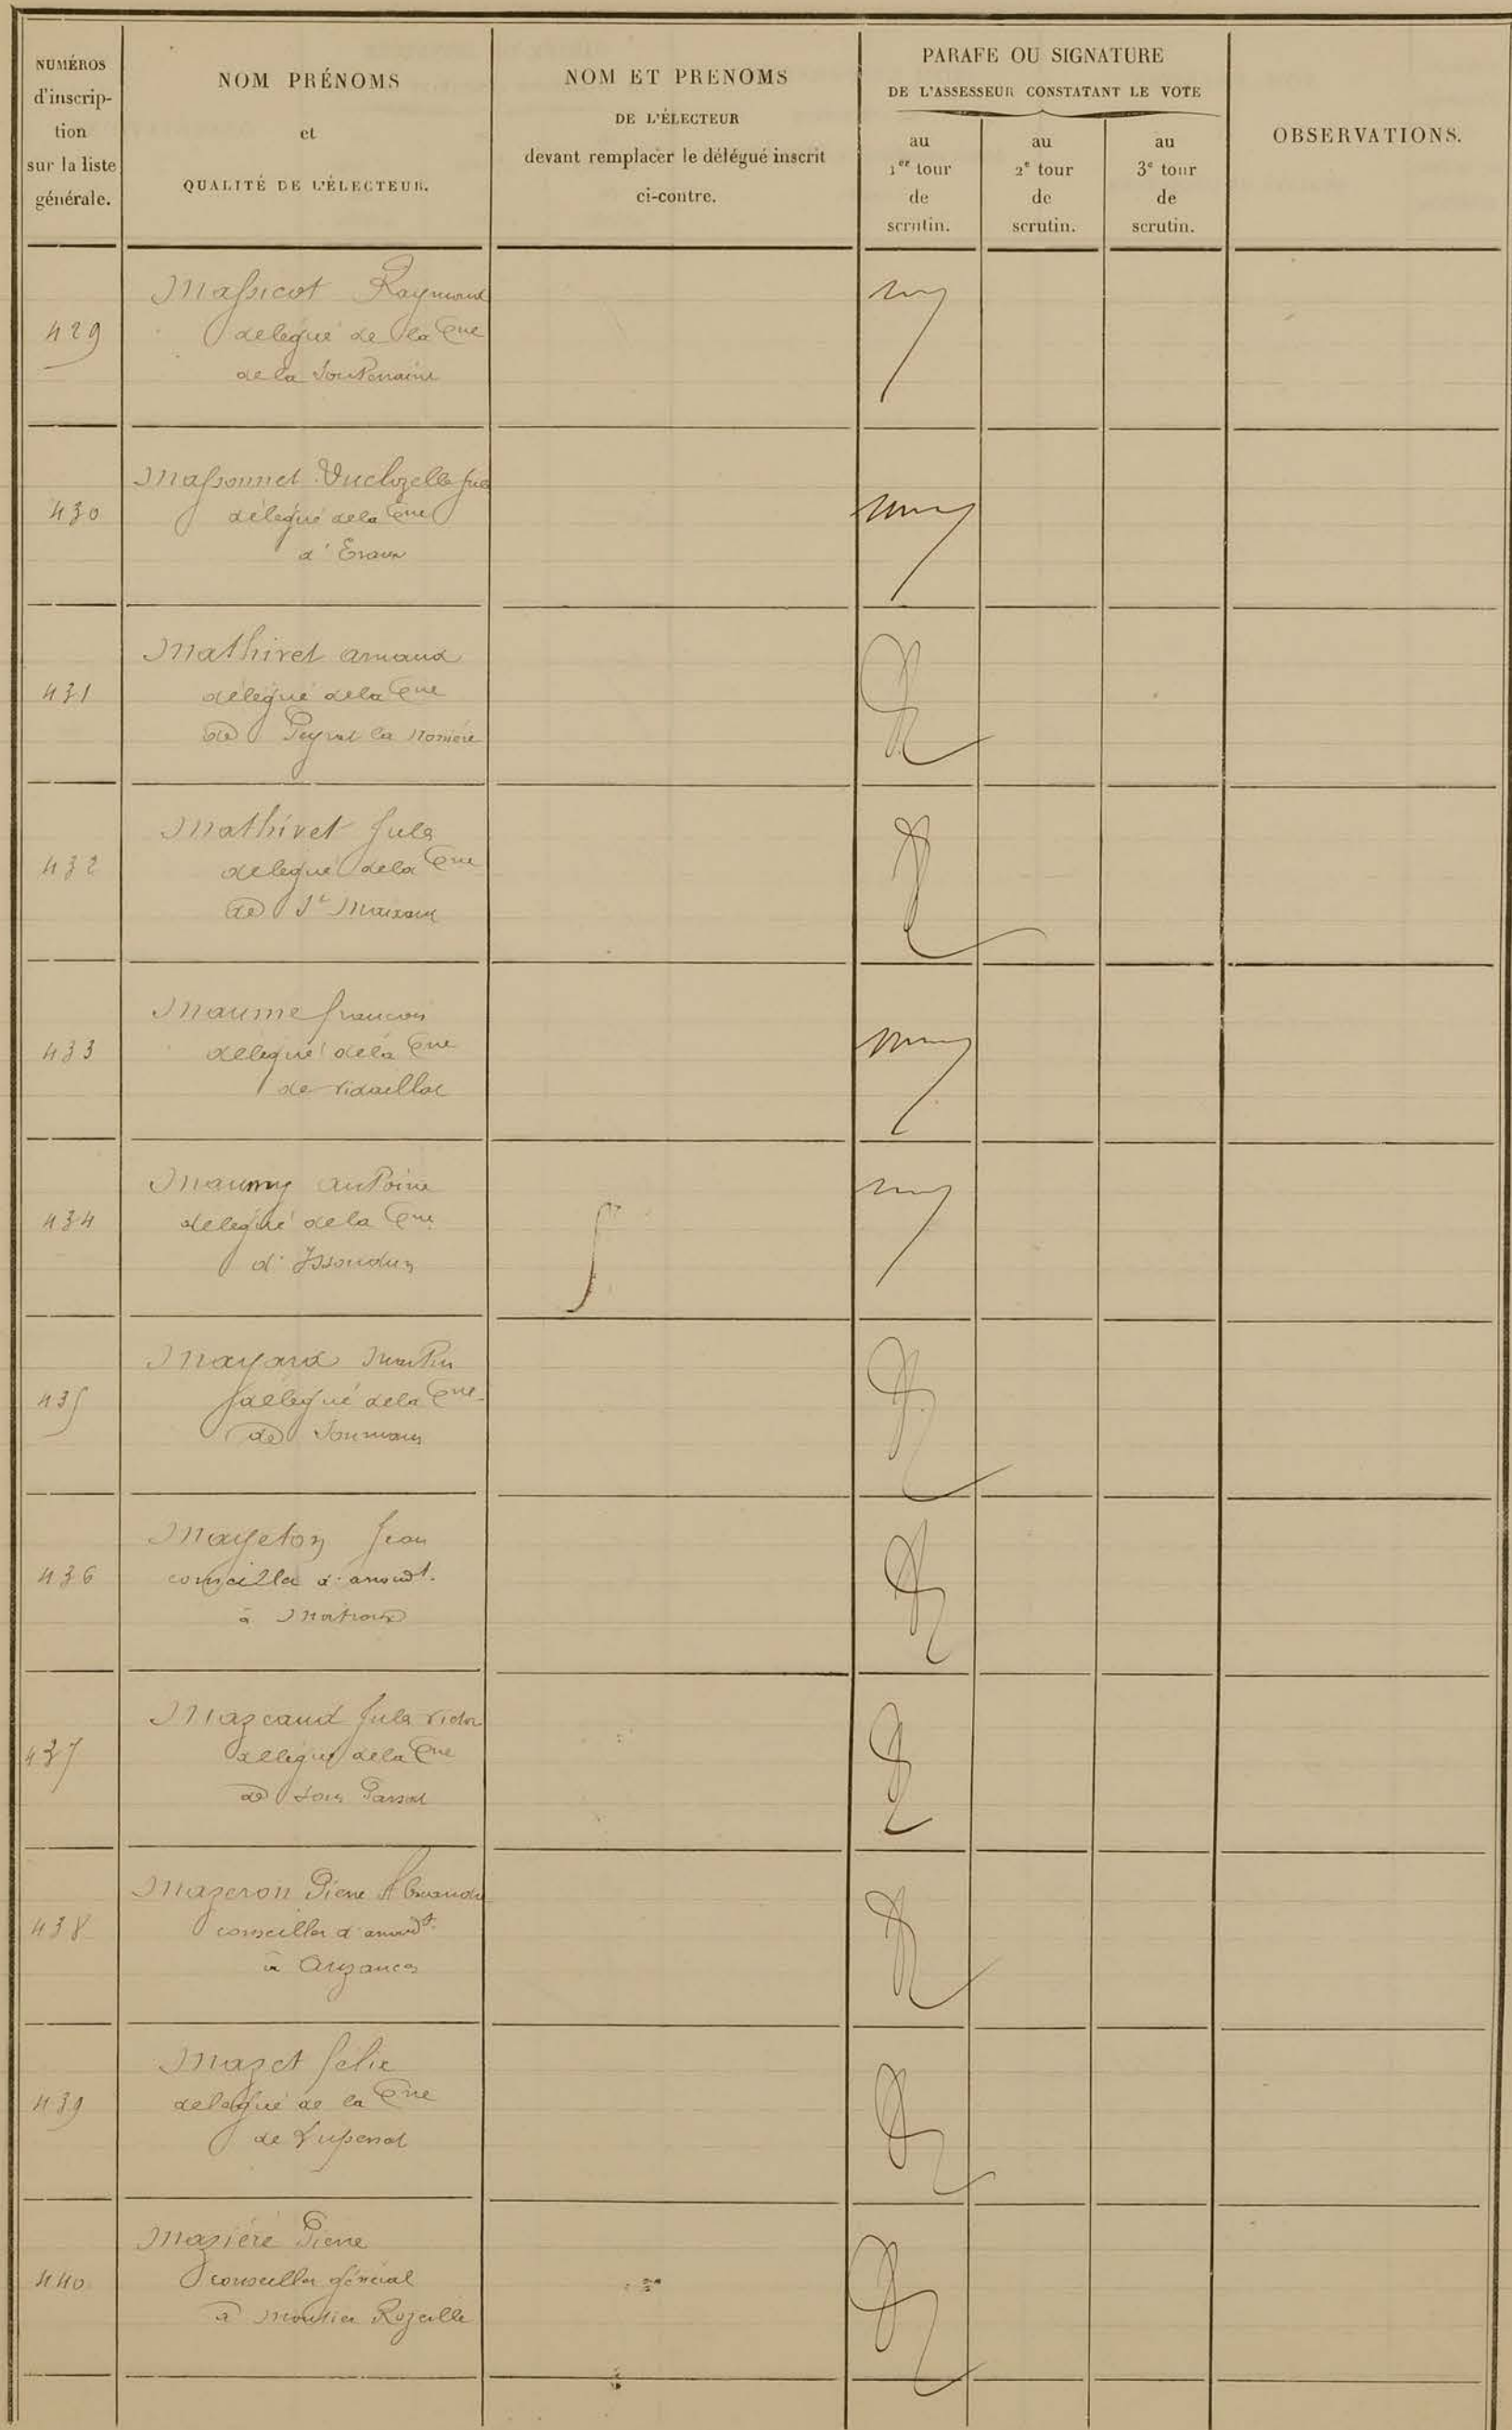 NUMÉROS
d'inscrip-
tion
sur la liste
générale.
NOM PRÉNOMS
et
QUALITÉ DE L'ÉLECTEUR.
NOM ET PRENOMS
DE L'ÉLECTEUR
devant remplacer le délégué inscrit
ci-contre.
PARAFE OU SIGNATURE
DE L'ASSESSEUR CONSTATANT LE VOTE
au
1er tour
de
scrutin.
au
2e tour
de
scrutin.
au
3e tour
de
scrutin.
OBSERVATIONS.
429
Massicot Raymond
délégué de la Cne
de la Souterraine
430
Massonnet Duclozelle
délégué de la Cne
d'Evaux
431
Mathivet Arnaud
délégué de la Cne
de Peyrat la Nonière
432
Mathivet Jules
délégué de la Cne
de St
433
Maume françois
délégué de la Cne
de Vidaillat
434
Maumy Antoine
délégué de la Cne
d'Issoudun
435
Mayard Martin
délégué de la Cne
de Soumans
436
Mayeton Jean
conseiller d'arrondt.
à
437
Mazeaud Jules Victor
délégué de la Cne
de Sous Parsat
438
Mazeron Pierre Alexandre
conseiller d'arrondt.
à Auzances
439
Mazet félix
délégué de la Cne
de Lupersat
440
Mazière Pierre
conseiller général
à Moutier Rozeille